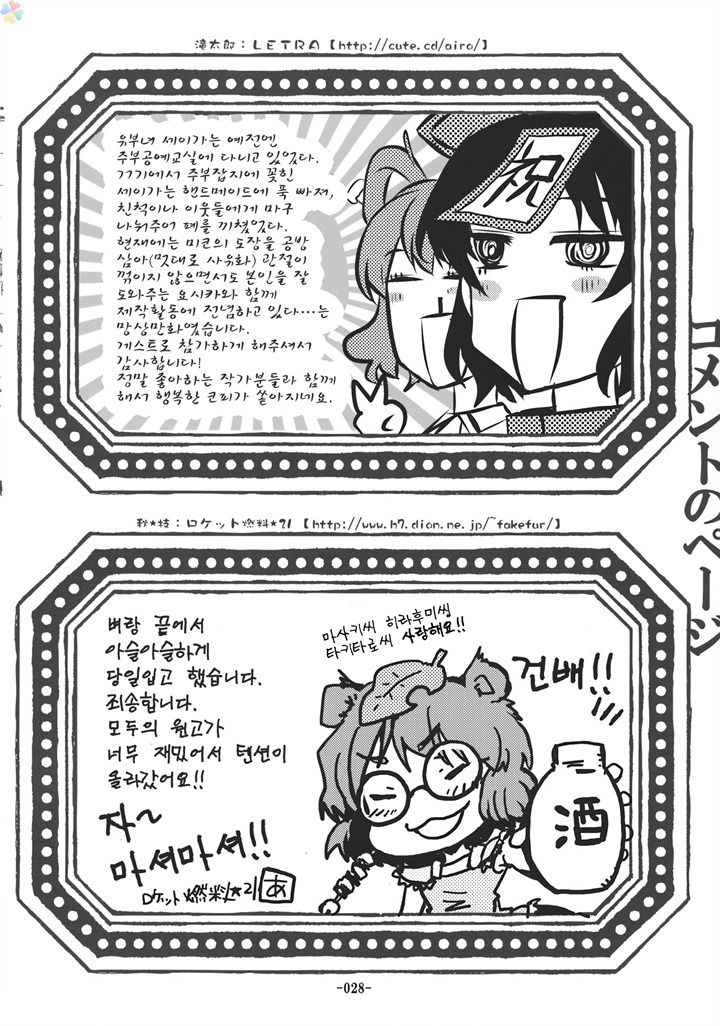 滝太郎：LETRA【http://cute.cd/airo/】
유부녀 세이가는 예전엔
주부공예교실에 다니고 있었다.
거기에서 주부잡지에 꽂힌
세이가는 핸드메이드에 푹 빠져,
친척이나 이웃들에게 마구
나눠주어 폐를 끼쳤었다.
현재에는 미코의 도장을 공방
삼아(멋대로 사유화) 관절이
꺾이지 않으면서도 본인을 잘
도와주는 요시카와 함께
제작활동에 전념하고 있다…는
망상만화였습니다.
게스트로 참가하게 해주셔서
감사합니다!
정말 좋아하는 작가분들과 함께
해서 행복한 코피가 쏟아지네요.
祝
コメントのページ
秋★枝：ロケット燃料★21【http://www.h7.dion.ne.jp/~fakefur/】
벼랑 끝에서
아슬아슬하게
당일입고 했습니다.
죄송합니다.
모두의 원고가
너무 재밌어서 텐션이
올라갔어요!!
자~
마셔마셔!!
ロケット燃料★21 あ
마사키씨 히라후미씽
타키타로씨 사랑해요!!
건배!!
酒
-028-